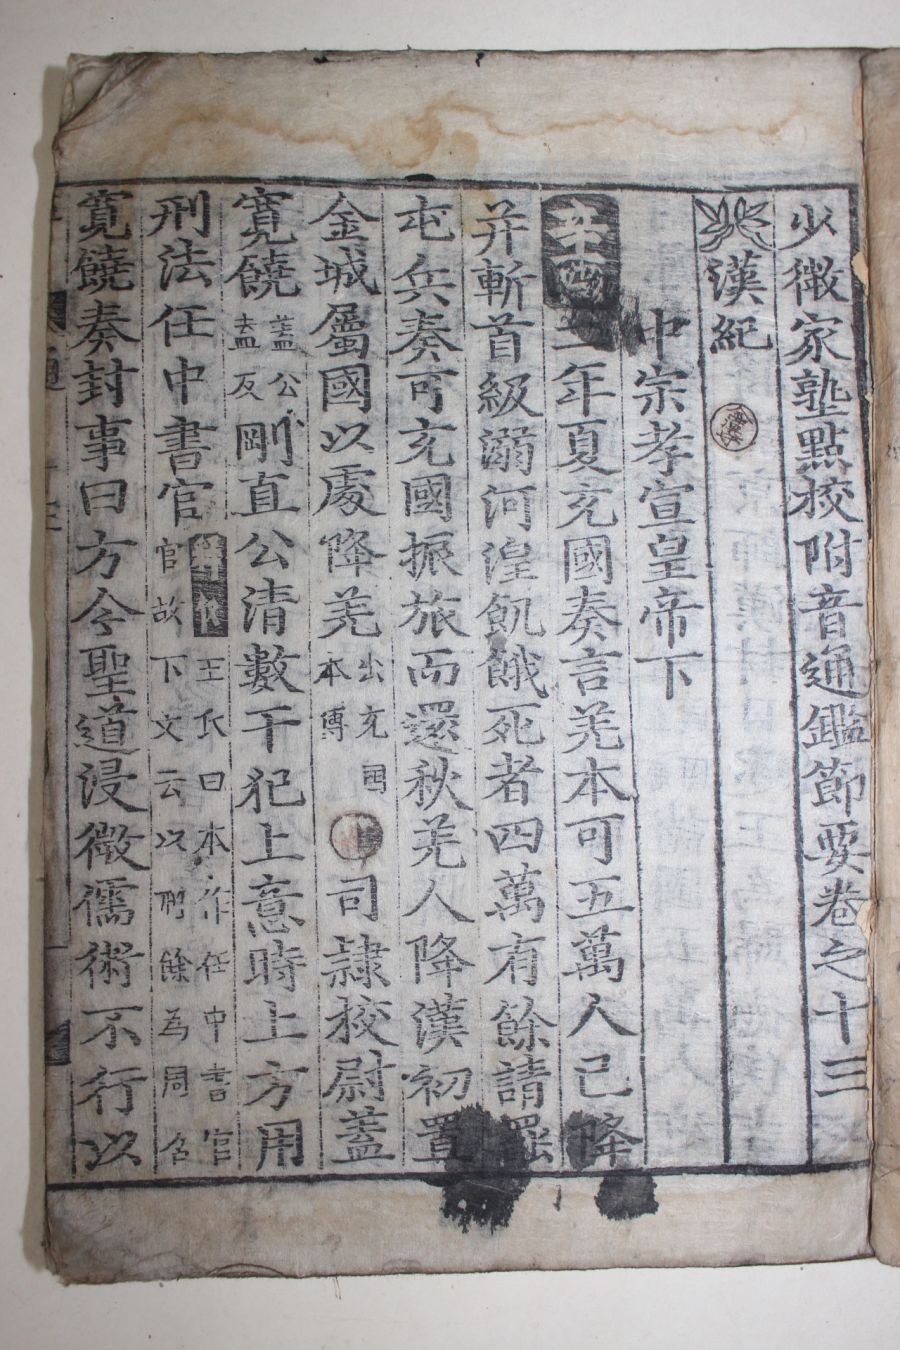 少微家塾點校附音通鑑節要卷之十三
漢紀
中宗孝宣皇帝下
辛酉二年夏充國奏言羌本可五萬人已降
并斬首級溺河湟飢餓死者四萬有餘請罷
屯兵奏可充國振旅而還秋羌人降漢初置
金城屬國以處降羌出充國本傳司隷校尉蓋
寬饒蓋公盍反剛直公清數干犯上意時上方用
刑法任中書官王氏曰本作任中書官官故下文云以刑餘為周召
寬饒奏封事曰方今聖道浸微儒術不行以